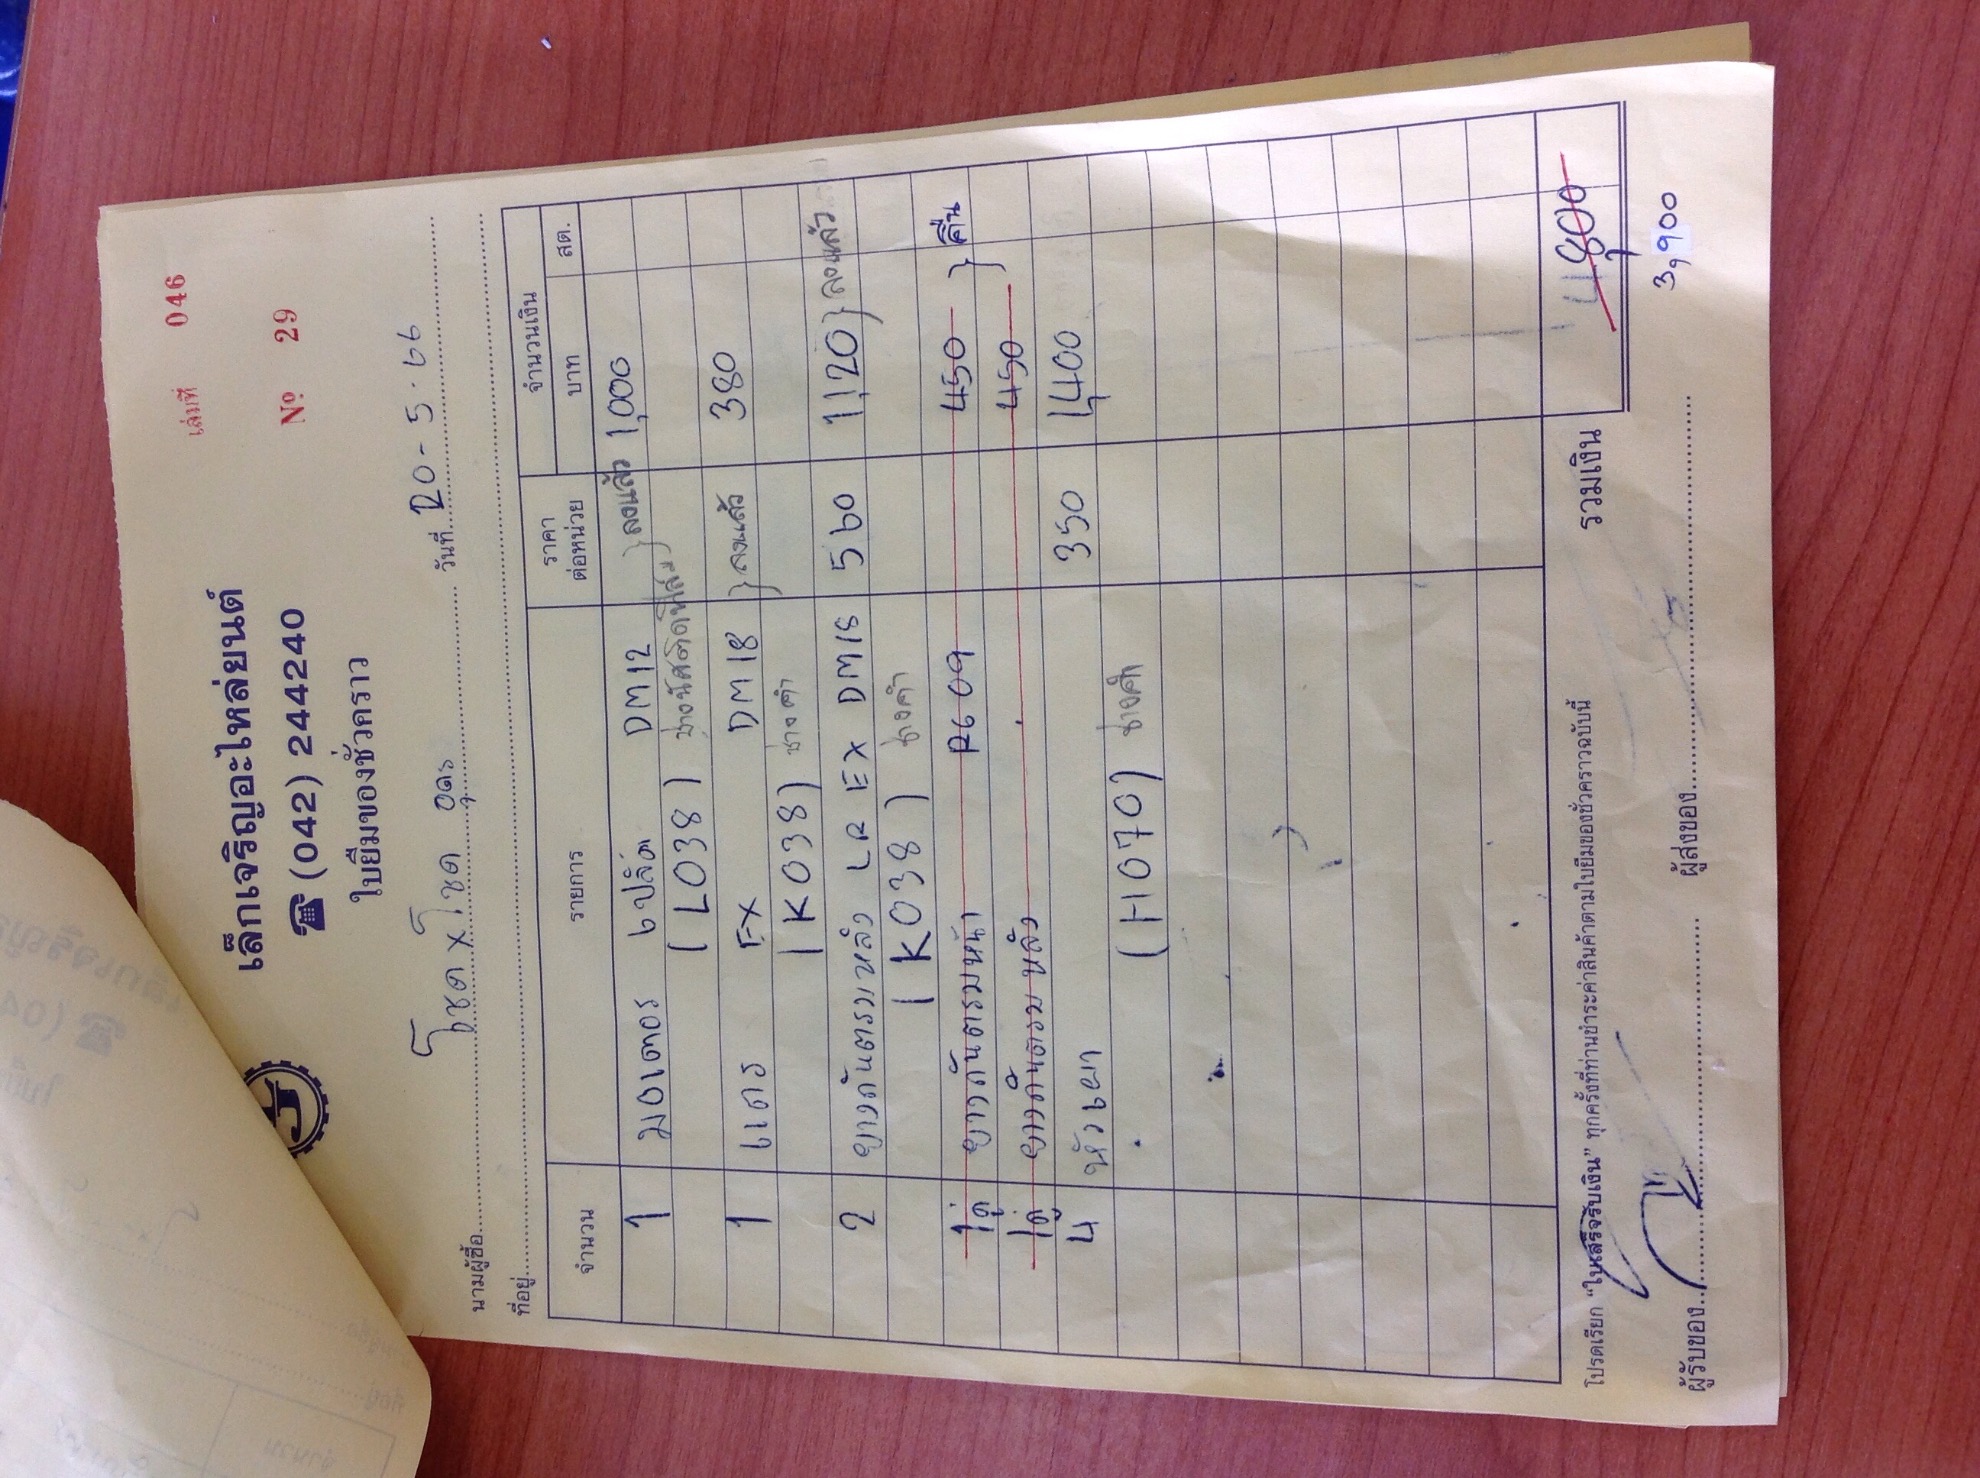 เล่มที่ 046
เล็กเจริญอะไหล่ยนต์
☎ (042) 244240
Nº 29
ใบยืมของชั่วคราว
นามผู้ซื้อ โชค x โชค อุดร วันที่ 20-5-66
ที่อยู่
จำนวน รายการ ราคาต่อหน่วย จำนวนเงิน
บาท สต.
1 มอเตอร 6 ปลั๊ก DM12 } ลงแล้ว 1,000
(L038)
1 แตร EX DM18 } ลงแล้ว 380
(K038) ช่างคำ
2 ยางกันตรมหลัง LR EX DM18 560 1,120 } ลงแล้ว
(K038) ช่างคำ
1คู่ ยางกันตรมหน้า R609 450 } คืน
1คู่ ยางกันตรมหลัง 450
4 หัวเผา 350 1,400
(H070) ช่างคำ
รวมเงิน 4,800
3,900
โปรดเรียก “ใบเสร็จรับเงิน” ทุกครั้งที่ท่านชำระค่าสินค้าตามใบยืมของชั่วคราวฉบับนี้
ผู้รับของ ผู้ส่งของ